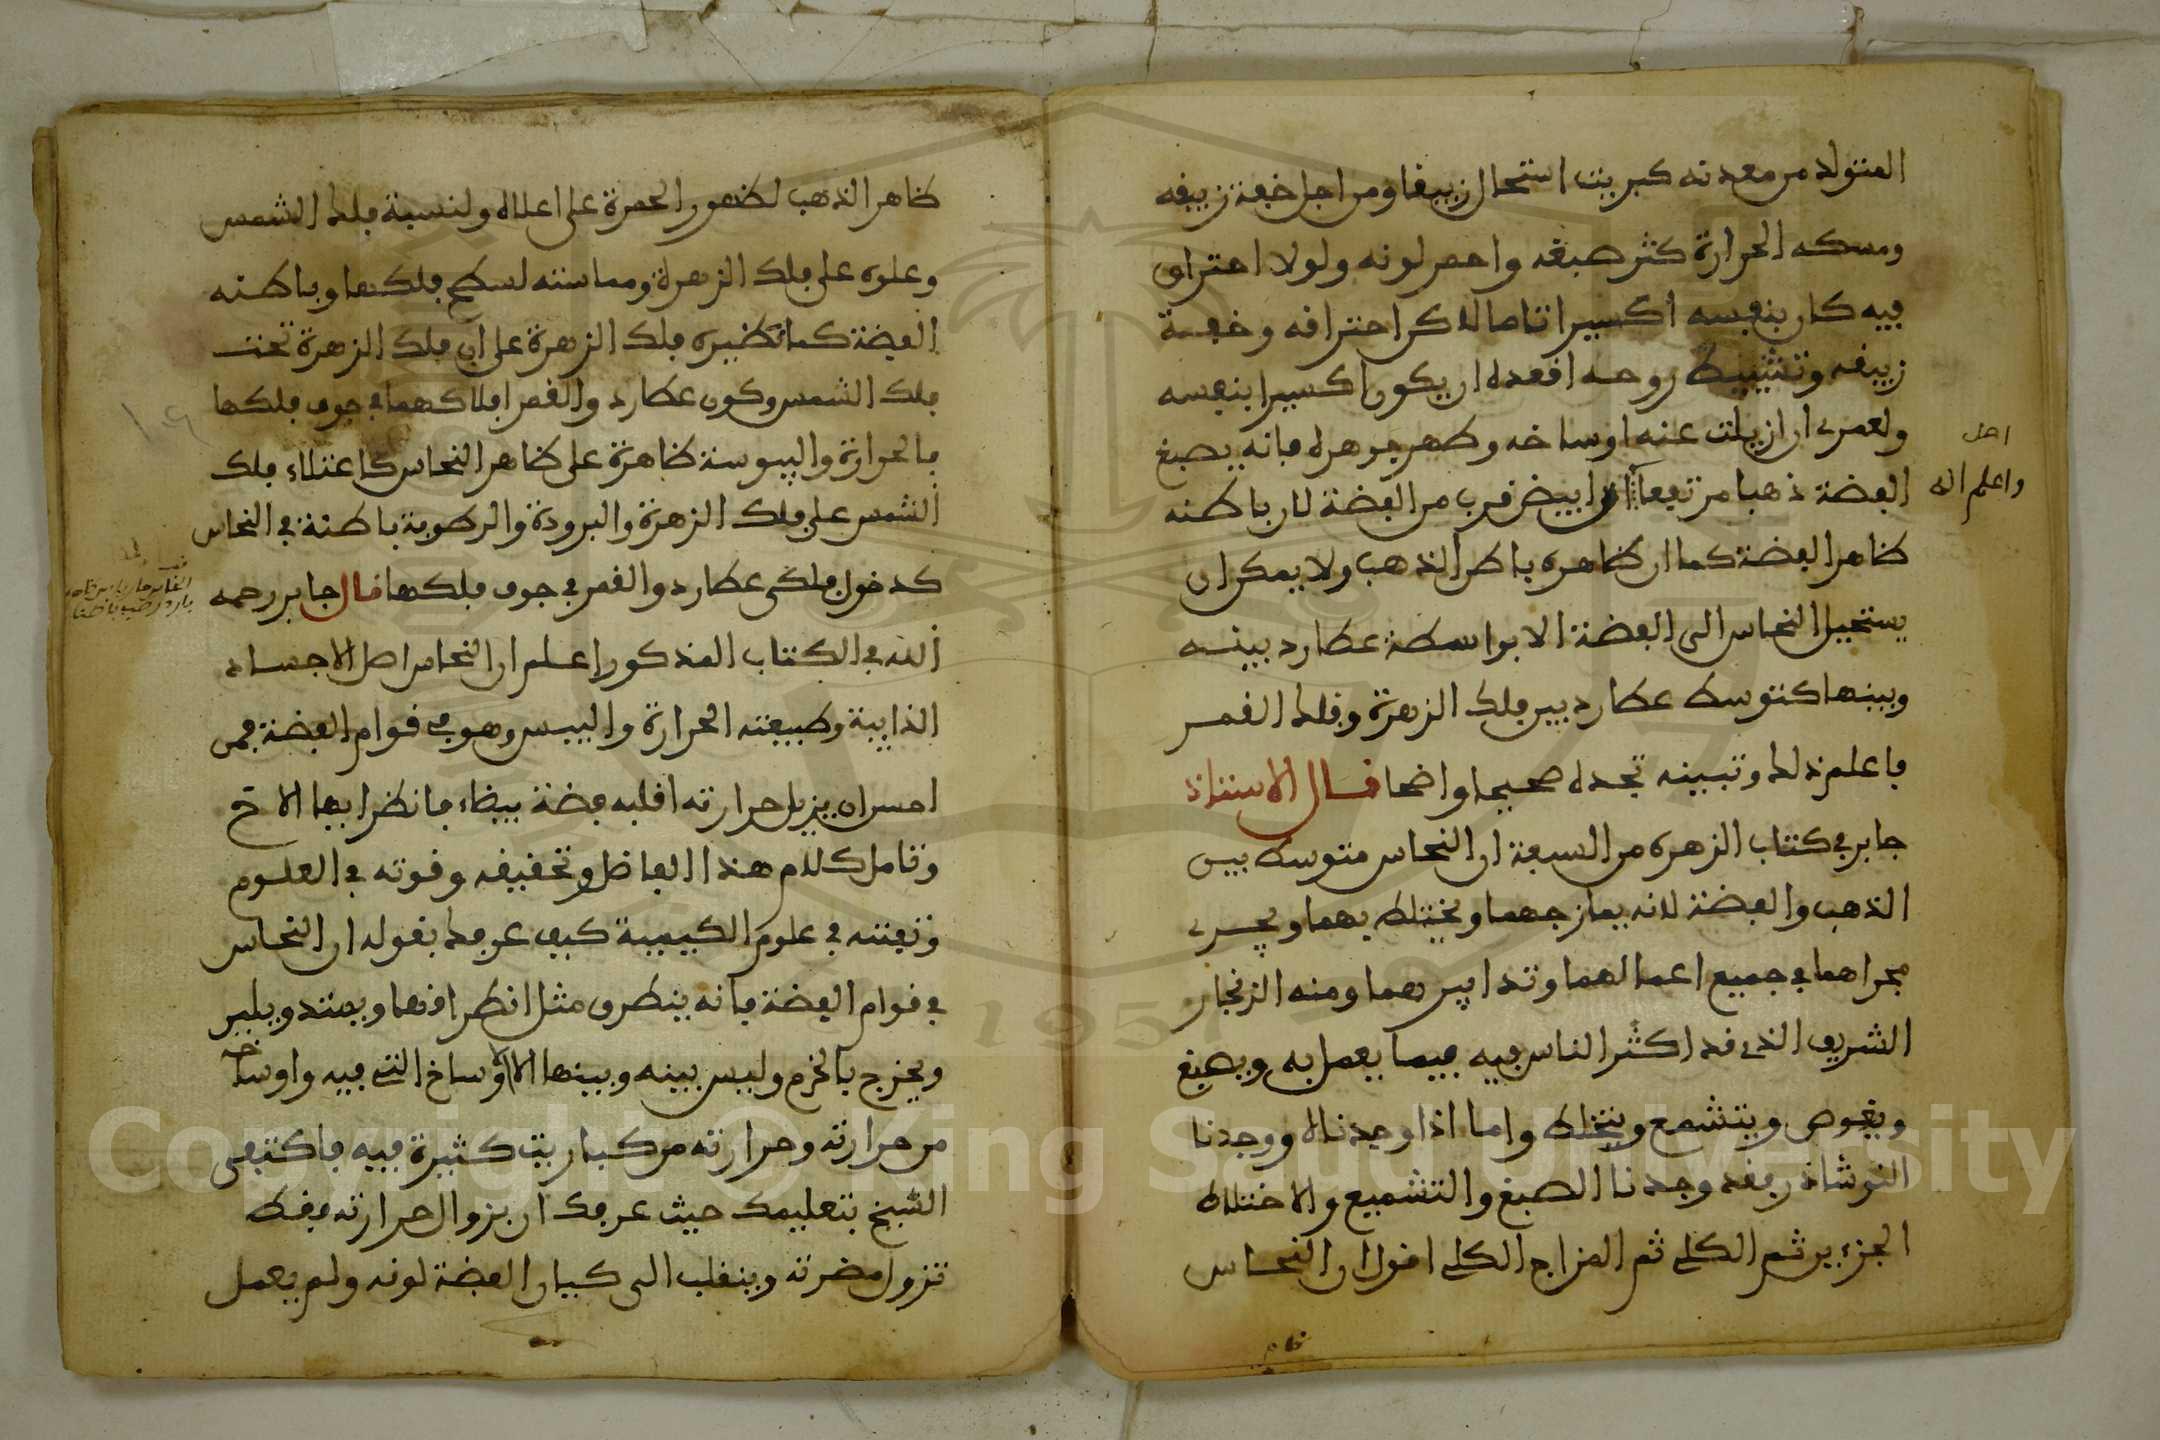 المتولد من معدنه كبريت استحال زيبقا ومن اجل خفة زيبقه
ومسكه الحرارة كثر صبغه واحمر لونه ولولا احتراق
فيه كان بنفسه اكسيرا تاما لاكن احتراقه وخفة
زيبقه وتثبيط روحه اقعده ان يكون اكسيرا بنفسه
ولعمري ان ازيلت عنه اوساخه وطهر جوهره فانه يصبغ
الفضة ذهبا مرتفعا ابيض قرب من الفضة لان باطنه
واعلم انه
ظاهر الفضة كما ان ظاهره باطن الذهب ولا يمكن ان
يستحيل النحاس الى الفضة الا بواسطة عطارد بينه
وبينها كتوسط عطارد بين فلك الزهرة وفلك القمر
فاعلم ذلك وتبينه تجده صحيحا واضحا قال الاستاذ
جابر في كتاب الزهره من السبعة ان النحاس متوسط بين
الذهب والفضة لانه يمازجهما ويختلط بهما ويجري
مجراهما في جميع اعمالهما وتدابيرهما ومنه الزنجار
الشريف الذي قد اكثر الناس فيه فيما يعمل به ويصبغ
ويغوص ويتشمع ويختلط واما اذا وجدناه ووجدنا
النوشاذر فقد وجدنا الصبغ والتشميع والاختلاط
الجزءين ثم الكلي ثم المزاج الكلي اقول ان النحاس
ظاهر الذهب لظهور الحمرة على اعلاه ولنسبة فلك الشمس
وعلوه على فلك الزهرة ومماسته لسطح فلكها وباطنه
الفضة كما نظيره فلك الزهرة على ان فلك الزهرة تحت
فلك الشمس وكون عطارد والقمر افلاكهما في جوف فلكها
فالحرارة واليبوسة ظاهرة على ظاهر النحاس كاعتلاء فلك
الشمس على فلك الزهرة والبرودة والرطوبة باطنة في النحاس
كدخول فلكي عطارد والقمر في جوف فلكها قال جابر رحمه
الله في الكتاب المذكور اعلم ان النحاس اصل الاجساد
الذايبة وطبيعته الحرارة واليبس وهو في قوام الفضة فمن
احسن ان يزيل حرارته اقلبه فضة بيضاء فانظر ايها الاخ
وتامل كلام هذا الفاضل وتحقيقه وقوته في العلوم
وتفننه في علوم الكيمية كيف عرفك بقوله ان النحاس
في قوام الفضة فانه ينطرق مثل انطراقها ويمتد ويلين
ويخرج بالخزم وليس بينه وبينها الا الاوساخ التي فيه واوساخه
من حرارته وحرارته من كباريت كثيرة فيه فاكتفى
الشيخ بتعليمك حيث عرفك ان بزوال حرارته فقط
تزول مضرته وينقلب الى كيان الفضة لونه ولم يعمل
Copyright © King Saud University
1957